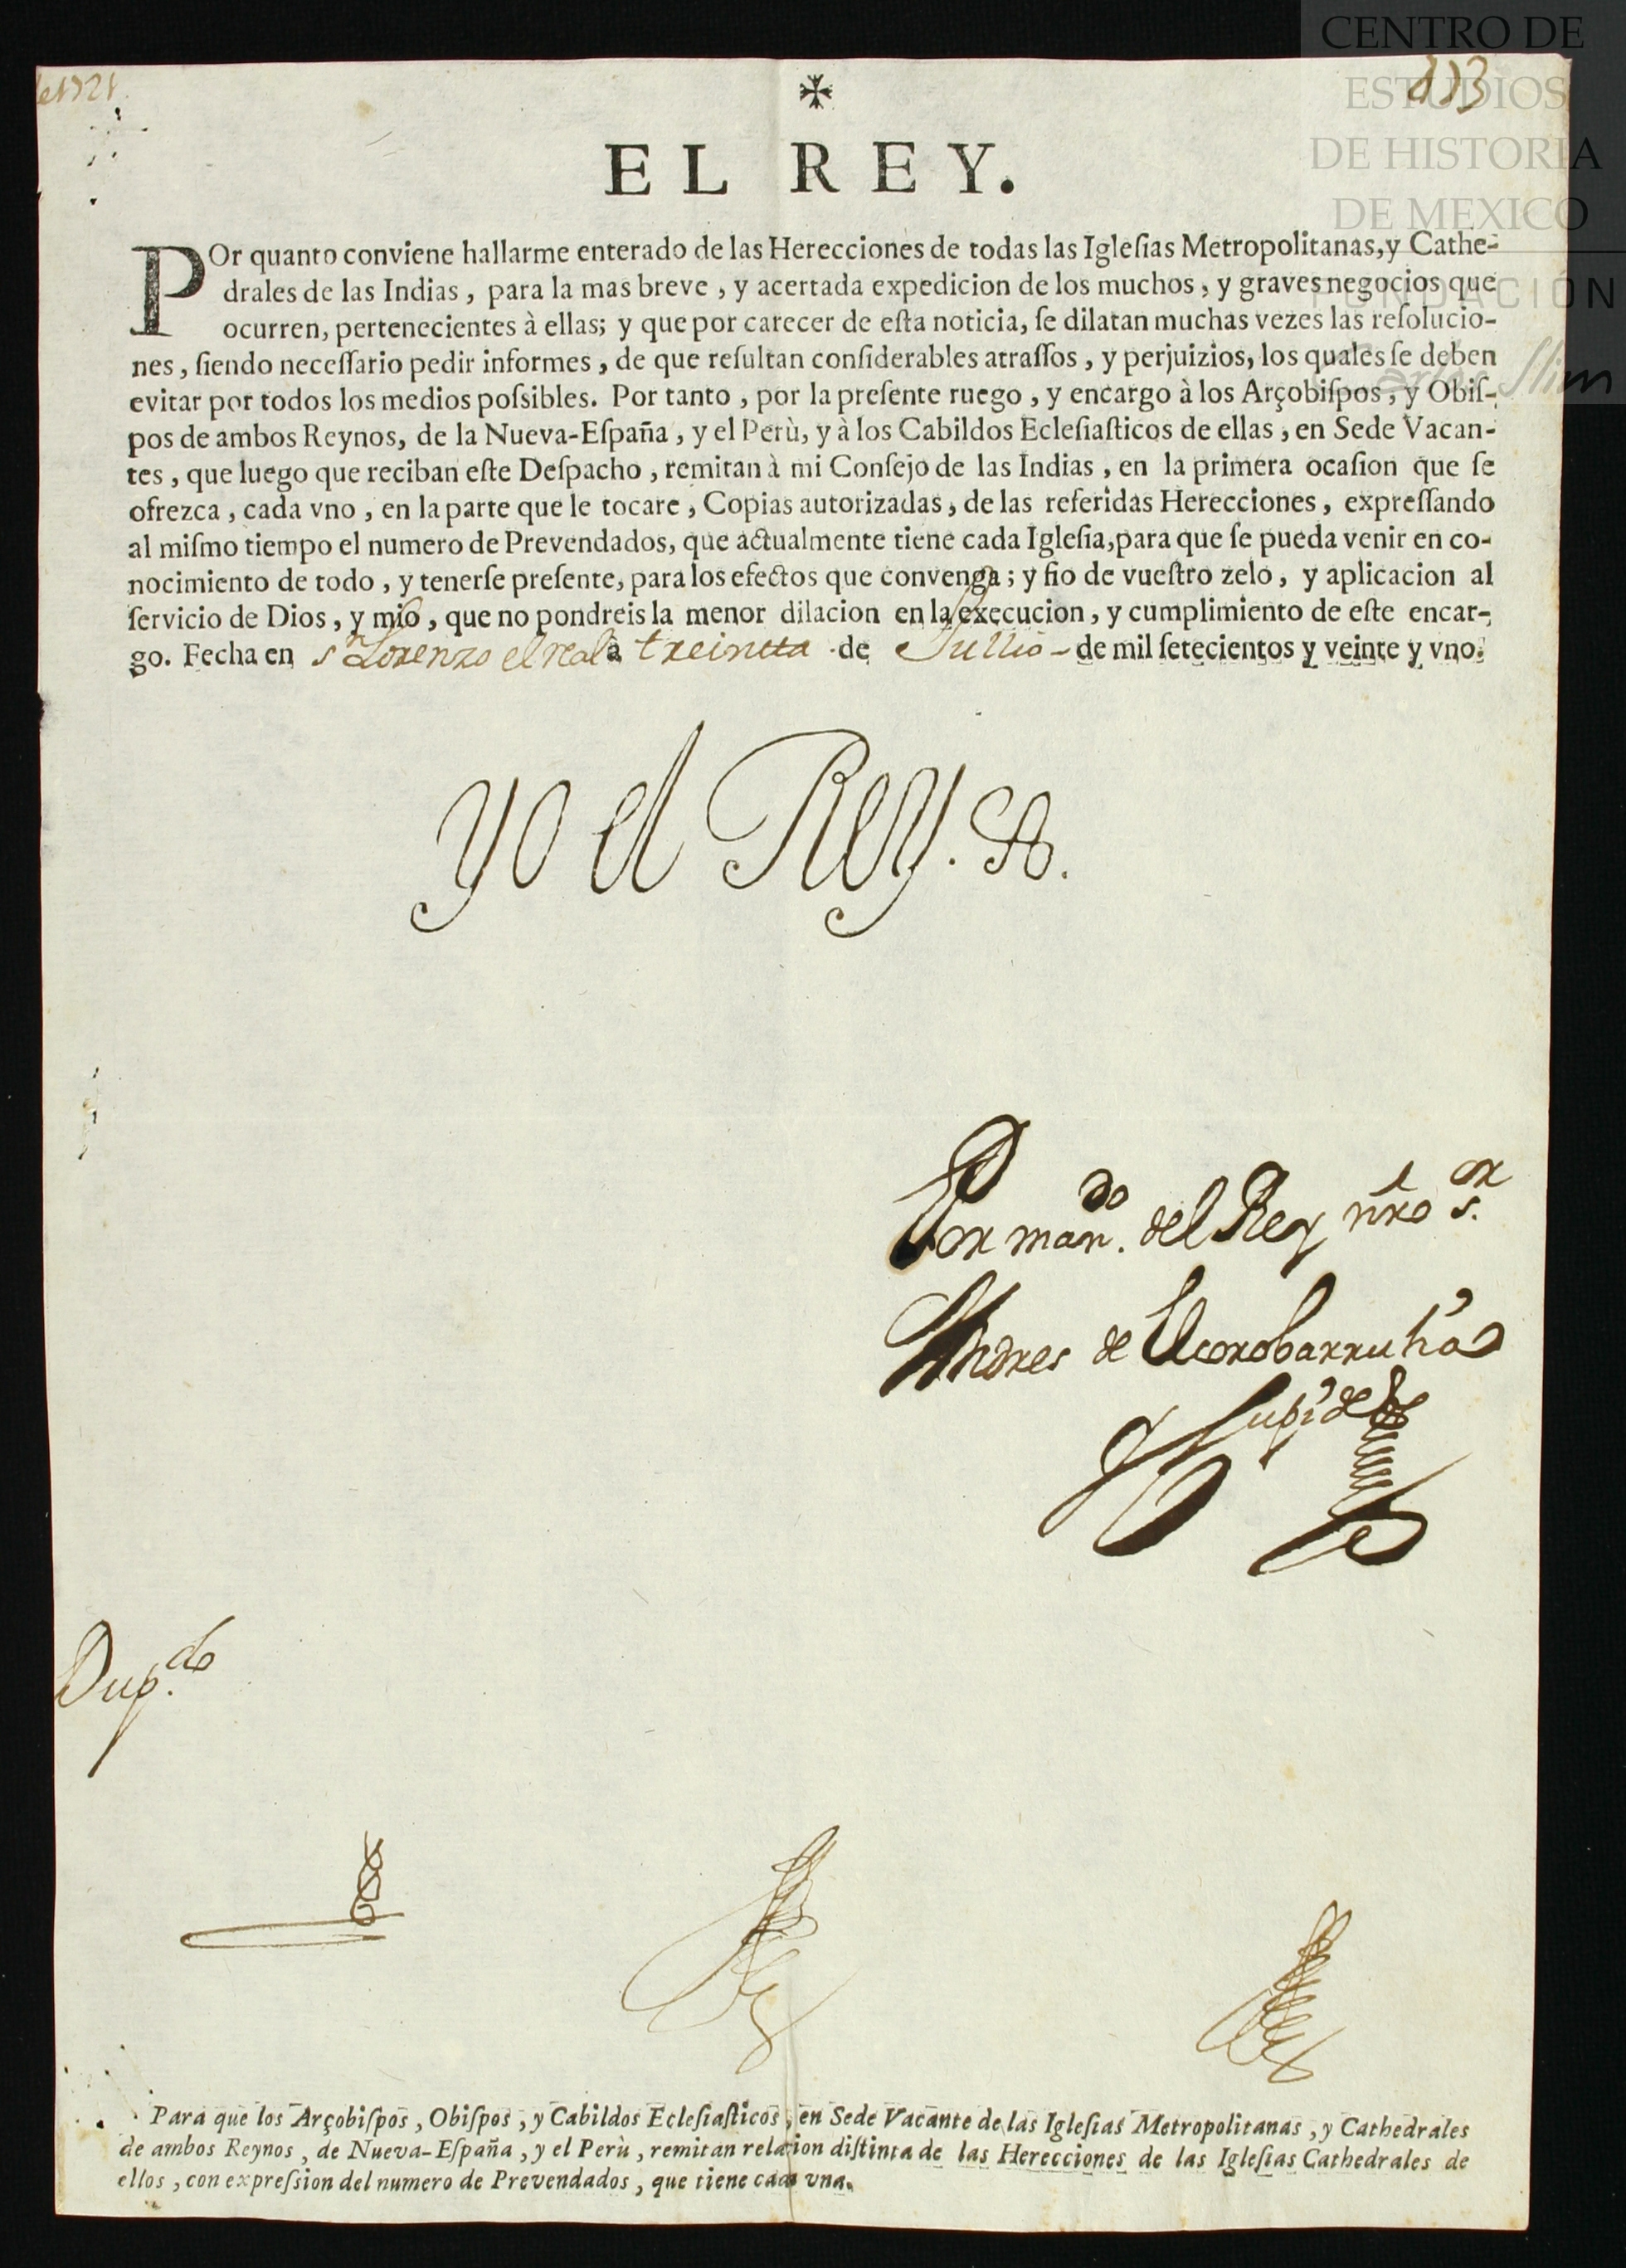 CENTRO DE
ESTUDIOS
DE HISTORIA
DE MEXICO
FUNDACIÓN
Carlos Slim
de 1721
113
EL REY.
POr quanto conviene hallarme enterado de las Herecciones de todas las Igleſias Metropolitanas, y Cathe-
drales de las Indias, para la mas breve, y acertada expedicion de los muchos, y graves negocios que
ocurren, pertenecientes à ellas; y que por carecer de eſta noticia, ſe dilatan muchas vezes las reſolucio-
nes, ſiendo neceſſario pedir informes, de que reſultan conſiderables atraſſos, y perjuizios, los quales ſe deben
evitar por todos los medios poſsibles. Por tanto, por la preſente ruego, y encargo à los Arçobiſpos, y Obiſ-
pos de ambos Reynos, de la Nueva-Eſpaña, y el Perù, y à los Cabildos Ecleſiaſticos de ellas, en Sede Vacan-
tes, que luego que reciban eſte Deſpacho, remitan à mi Conſejo de las Indias, en la primera ocaſion que ſe
ofrezca, cada vno, en la parte que le tocare, Copias autorizadas, de las referidas Herecciones, expreſſando
al miſmo tiempo el numero de Prevendados, que actualmente tiene cada Igleſia, para que ſe pueda venir en co-
nocimiento de todo, y tenerſe preſente, para los efectos que convenga; y fio de vueſtro zelo, y aplicacion al
ſervicio de Dios, y mio, que no pondreis la menor dilacion en la execucion, y cumplimiento de eſte encar-
go. Fecha en Sn Lorenzo el real à treintta de Jullio - de mil ſetecientos y veinte y vno.
yo el Rey.
Por mando. del Rey nro sor.
Andres de Elcorobarrutia
y Zupide
Dupdo.
Para que los Arçobiſpos, Obiſpos, y Cabildos Ecleſiaſticos, en Sede Vacante de las Igleſias Metropolitanas, y Cathedrales
de ambos Reynos, de Nueva-Eſpaña, y el Perù, remitan relacion diſtinta de las Herecciones de las Igleſias Cathedrales de
ellos, con expreſsion del numero de Prevendados, que tiene cada vna.